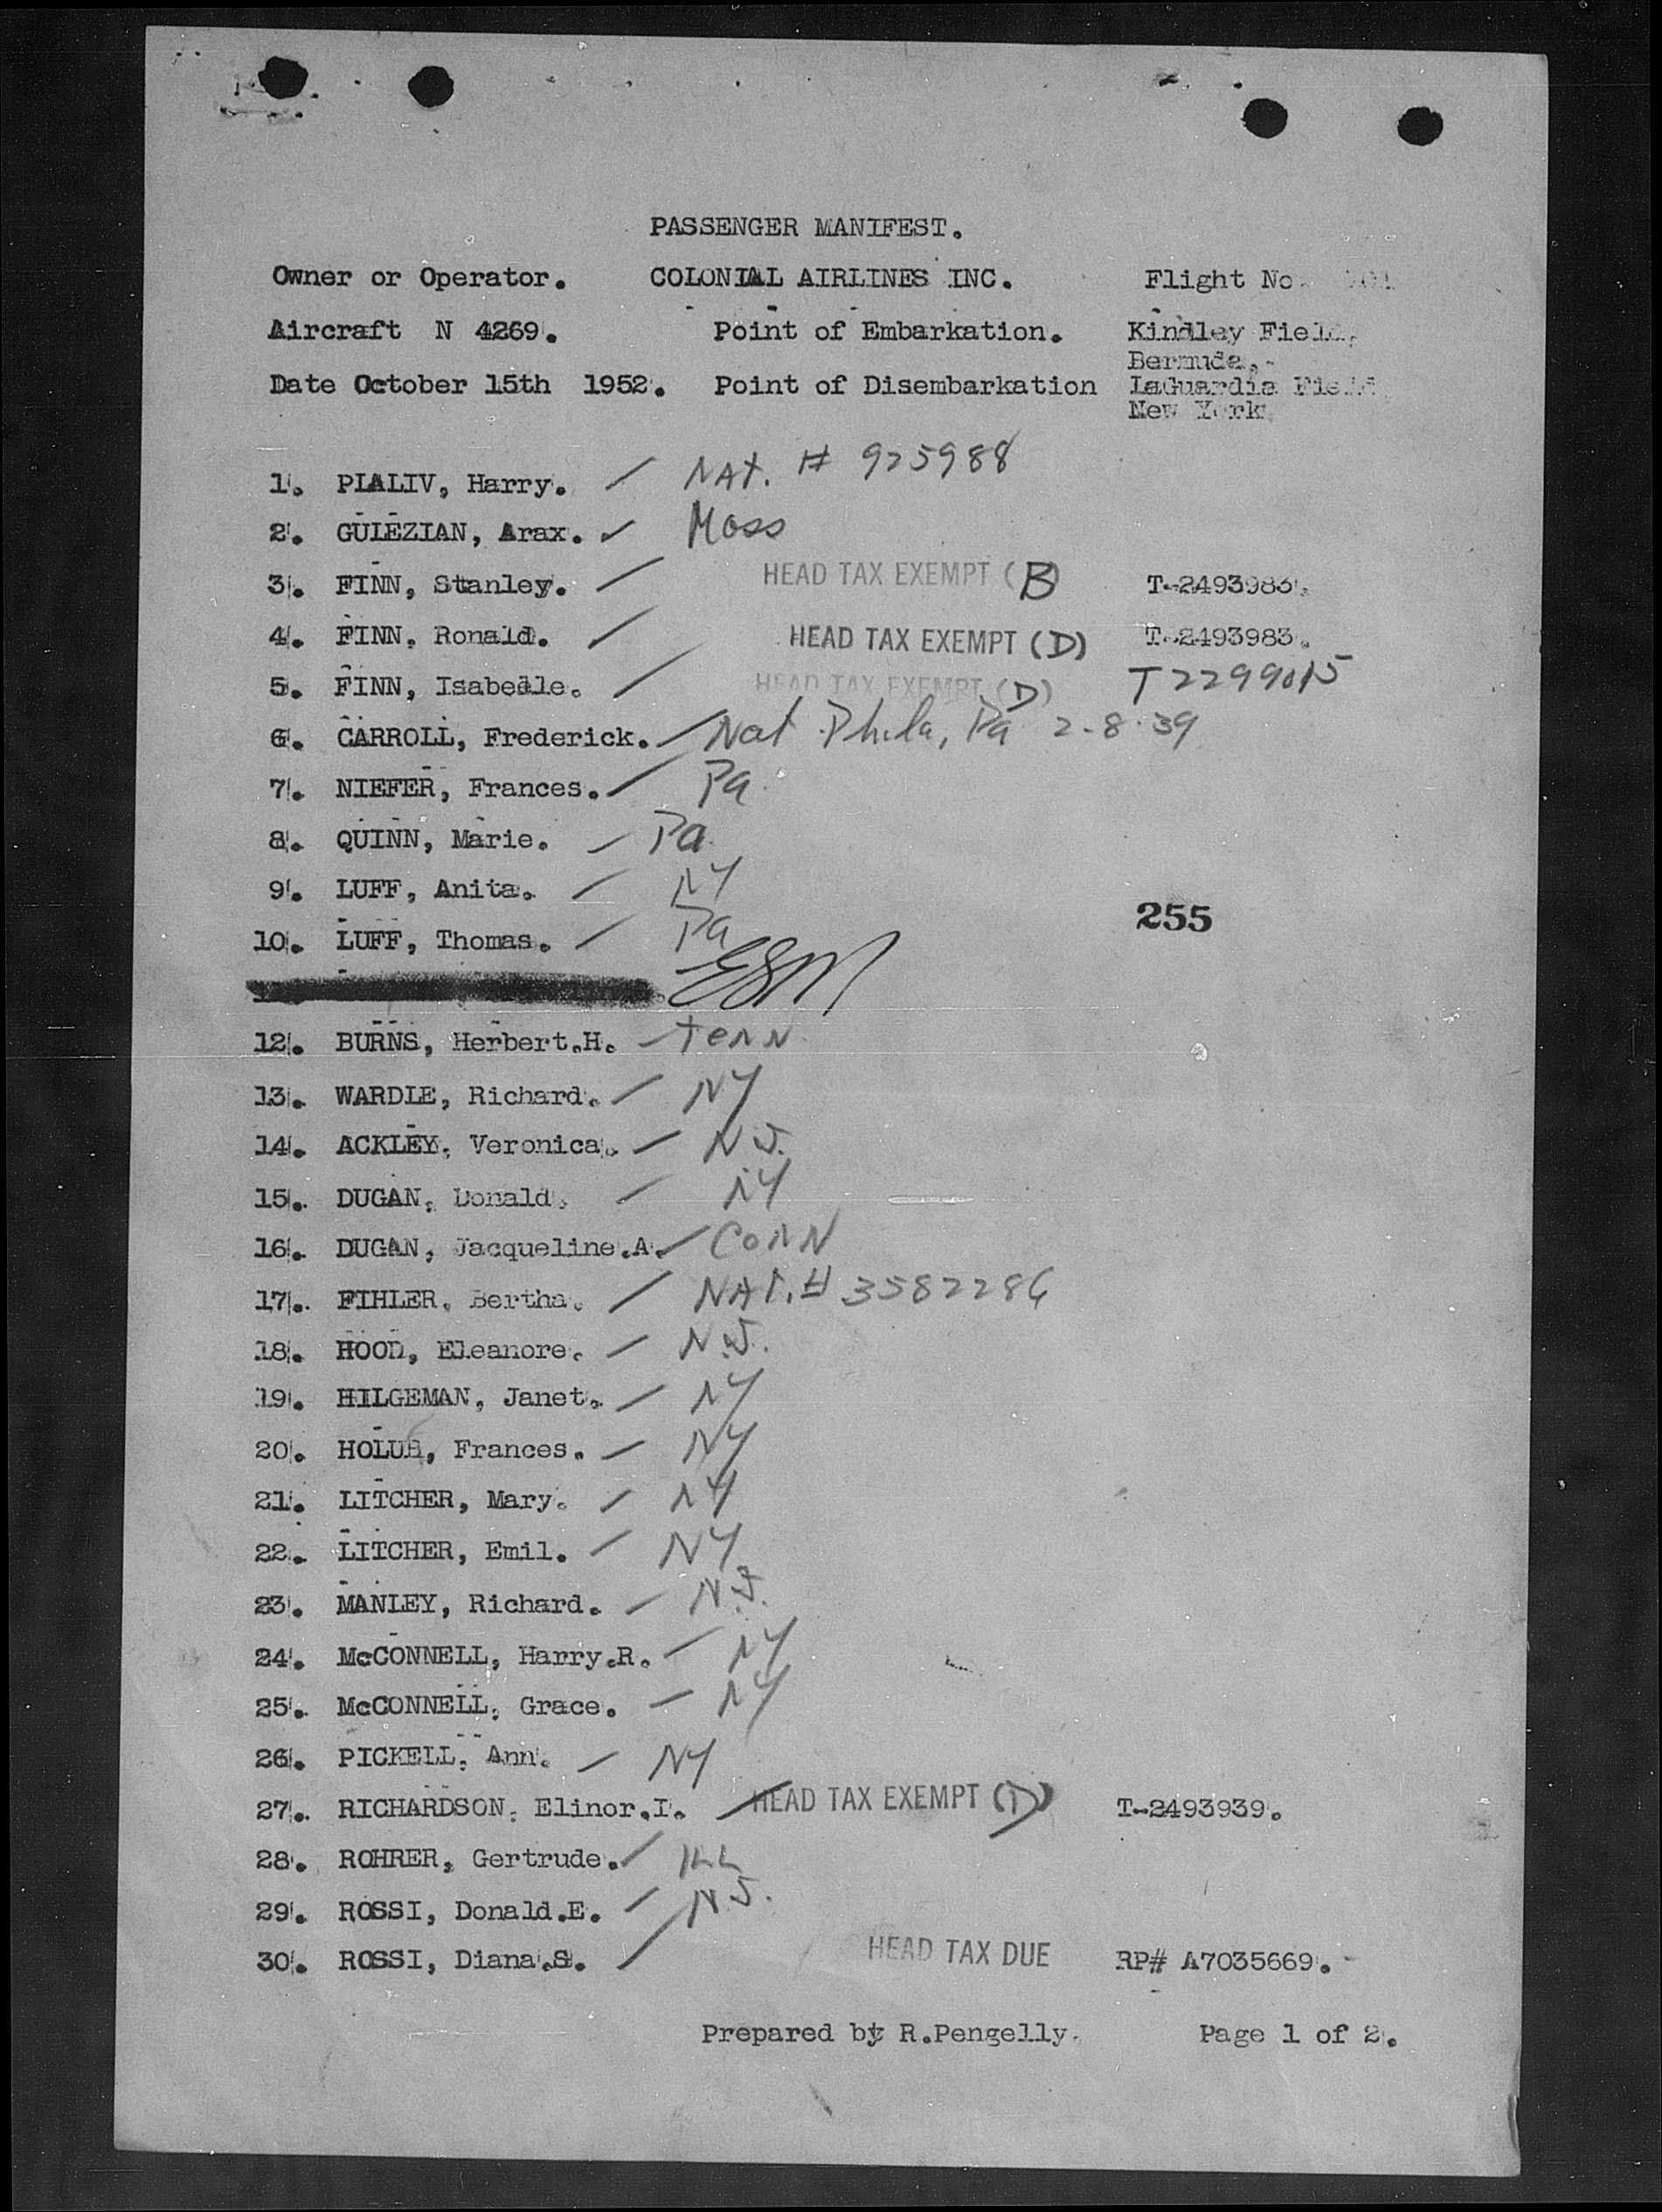 PASSENGER MANIFEST.
Owner or Operator. COLONIAL AIRLINES INC. Flight No.
Aircraft N 4269. Point of Embarkation. Kindley Field,
Bermuda.
Date October 15th 1952. Point of Disembarkation LaGuardia Field
New York
1. PIALIV, Harry. / NAT. # 925988
2. GULEZIAN, Arax. ✓ Mass
3. FINN, Stanley. / HEAD TAX EXEMPT (B) T-2493983.
4. FINN, Ronald. / HEAD TAX EXEMPT (D) T-2493983.
5. FINN, Isabelle. / HEAD TAX EXEMPT (D) T2299015
6. CARROLL, Frederick. / Nat Phila, Pa 2-8-39
7. NIEFER, Frances. / Pa
8. QUINN, Marie. / Pa
9. LUFF, Anita. / NY
255
10. LUFF, Thomas. / Pa
ESM
12. BURNS, Herbert.H. / Tenn
13. WARDLE, Richard. / NY
14. ACKLEY, Veronica. / N.J.
15. DUGAN, Donald. / NY
16. DUGAN, Jacqueline.A. / CONN
17. FIHLER, Bertha. / NAT. # 3582286
18. HOOD, Eleanore. / N.J.
19. HILGEMAN, Janet. / NY
20. HOLUB, Frances. / NY
21. LITCHER, Mary. / NY
22. LITCHER, Emil. / NY
23. MANLEY, Richard. / N.J.
24. McCONNELL, Harry.R. / NY
25. McCONNELL, Grace. / NY
26. PICKELL, Ann. / NY
27. RICHARDSON, Elinor.I. / HEAD TAX EXEMPT (D) T-2493939.
28. ROHRER, Gertrude. / ILL
29. ROSSI, Donald.E. / N.J.
30. ROSSI, Diana.S. / HEAD TAX DUE RP# A7035669.
Prepared by R.Pengelly. Page 1 of 2.